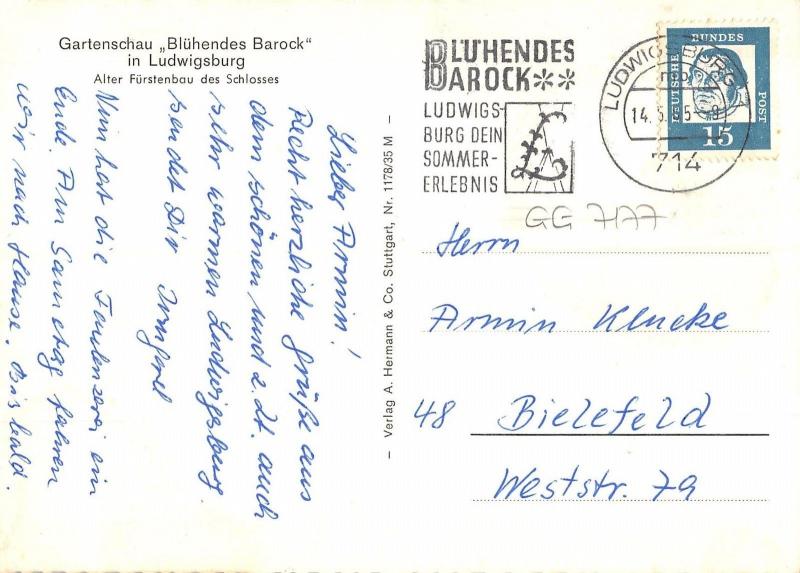 Gartenschau „Blühendes Barock“
in Ludwigsburg
Alter Fürstenbau des Schlosses
Lieber Armin!
Recht herzliche Grüße aus
dem schönen und z. Zt. auch
sehr warmen Ludwigsburg
sendet Dir Irmgard
Nun hat die Faulenzerei ein
Ende. Am Samstag fahren
wir nach Hause. Bis bald.
– Verlag A. Hermann & Co. Stuttgart, Nr. 1178/35 M –
BLÜHENDES
BAROCK**
LUDWIGS-
BURG DEIN
SOMMER-
ERLEBNIS
LUDWIGSBURG
14.5.65-9
714
DEUTSCHE
BUNDES
POST
15
GG 7177
Herrn
Armin Klucke
48 Bielefeld
Weststr. 79